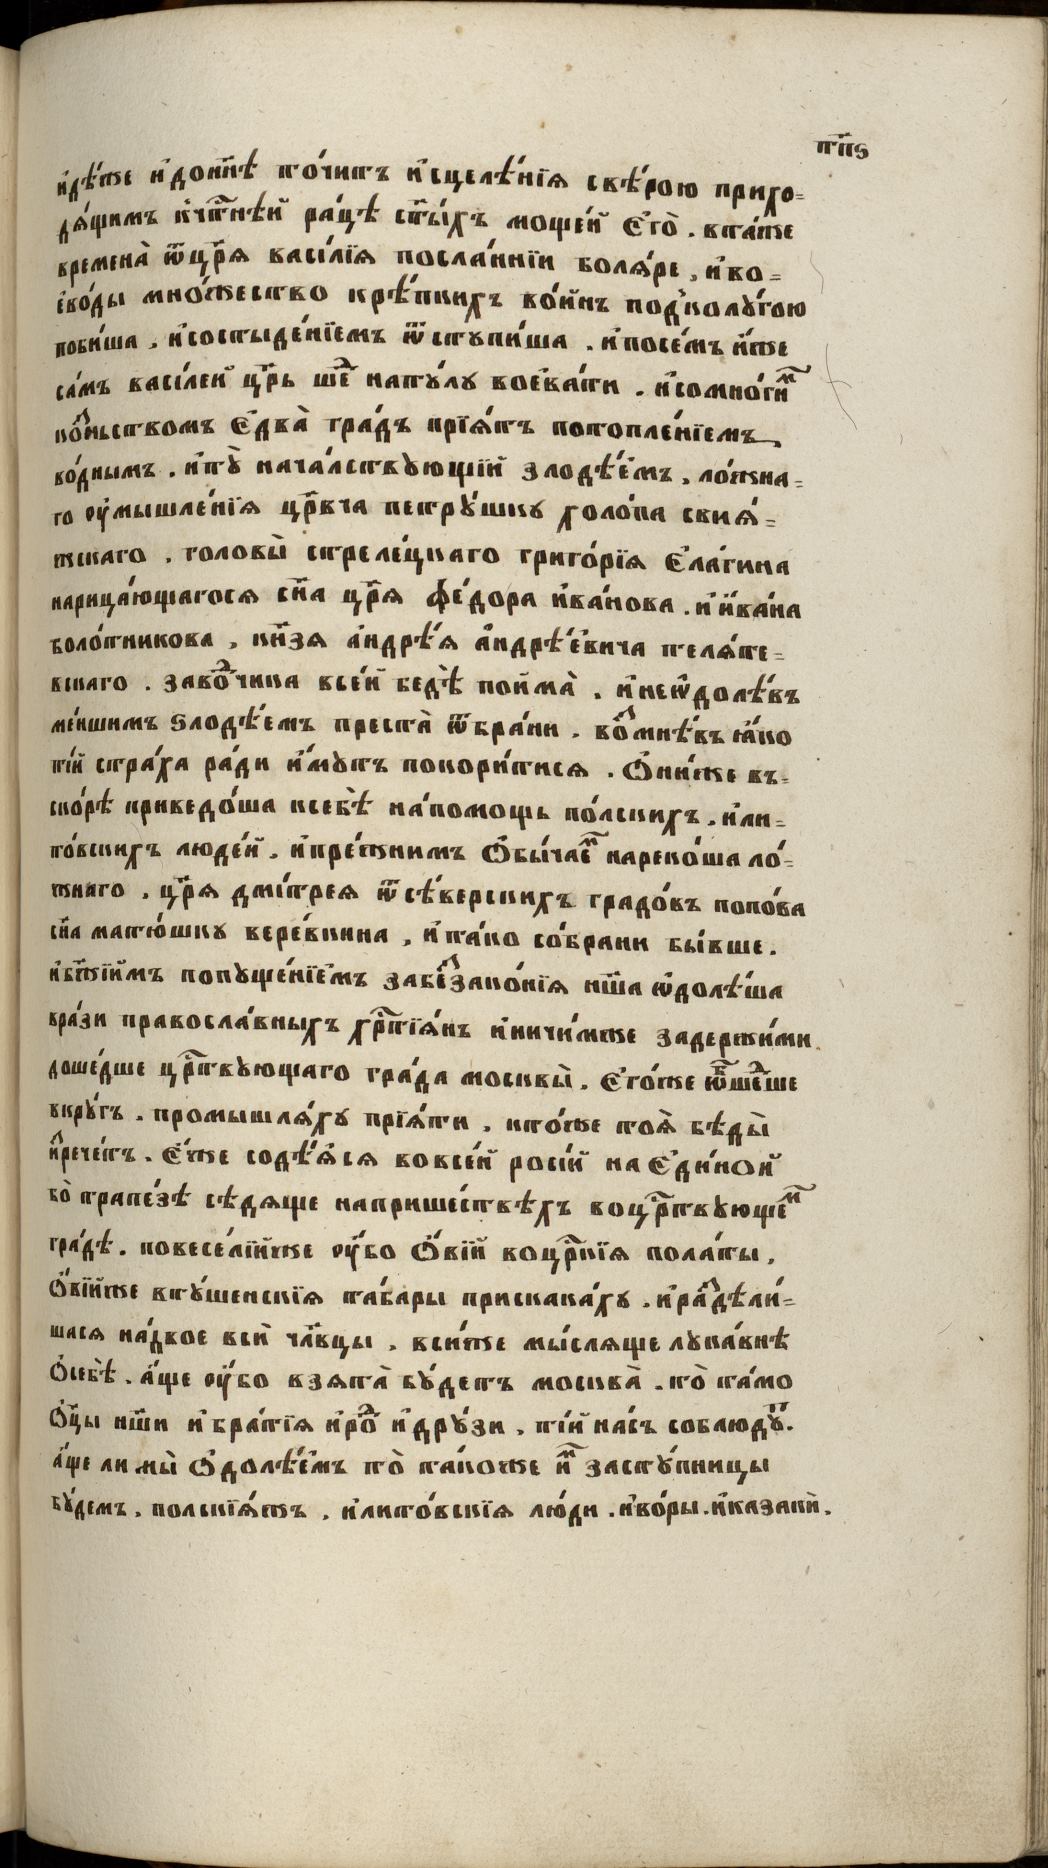 пп҃ѕ
идѣ́же и҆дон҃нѣ то́читъ и҆сцелѣ́нїѧ свѣ́рою прихо=
дѧ́щимъ кчⷭ҇тнѣ́й ра́цѣ ст҃ы́хъ моще́й є҆го̀. вта́же
времена̀ ѿцр҃ѧ васи́лїѧ посла́ннїи болѧ́ре, и҆во=
ево́ды мно́жество крѣ́пкихъ во́инъ под̾колꙋ́гою
поби́ша, и҆состыде́нїемъ ѿстꙋпи́ша. и҆посе́мъ и҆́же
са́мъ васи́лей цр҃ь шеⷣ натꙋ́лꙋ воева́ти. и҆сомно́гиⷨ
ко́ньствомъ є҆два̀ гра́дъ прїѧ́тъ потопле́нїемъ
во́днымъ. и҆тꙋ̀ нача́лствꙋющїй злодѣ́емъ, ло́жна=
го ᲂу҆мышле́нїѧ цр҃вча петрꙋ́шкꙋ холо́па сви́ѧ=
жскаго, головы̀ стреле́цкаго григо́рїѧ є҆ла́гина
нарица́ющагосѧ сн҃а цр҃ѧ фе́дора и҆ва́нова. и҆и҆ва́на
боло́тникова, кн҃зѧ а҆ндрѣ́ѧ а҆ндрѣ́евича телѧ́те=
вскаго. завоⷣчика все́й бедѣ̀ пойма̀. и҆неѡ҆долѣ́въ
ме́ншимъ ѕлодѣ́емъ преста̀ ѿбра́ни. воⷨмнѣ́въ ꙗ҆́ко
ті́й стра́ха ра́ди и҆́мꙋтъ покори́тисѧ. Ѻ҆ни́же въ=
ско́рѣ приведо́ша ксебѣ̀ на́помощь по́лскихъ. и҆ли=
то́вскихъ люде́й. и҆пре́жнимъ ѻ҆бы́чаеⷨ нареко́ша ло́=
жнаго, цр҃ѧ дми́трея ѿсѣ́верскихъ градо́въ попо́ва
сн҃а матю́шкꙋ вере́вкина, и҆та́ко со́брани бы́вше.
и҆бж҃їимъ попꙋще́нїемъ забеⷥзако́нїѧ нш҃а ѡ҆долѣ́ша
врази́ правосла́вныхъ хрⷭ҇тїѧ́нъ и҆ничи́мже задержи́ми.
доше́дше црⷭ҇твꙋющаго гра́да москвы̀. є҆го́же ѡ҆шеⷣше
ѡкрꙋ́гъ. промышлѧ́хꙋ прїѧ́ти, кто́же тоѧ̀ бѣды̀
и҆ⷥрече́тъ. є҆́же содѣ́ѧсѧ вовсе́й росі́й на є҆ди́нои
бо̀ трапе́зѣ сѣдѧще напришествѣхъ воцрⷭ҇твꙋющеⷨ
гра́дѣ. повесе́лїйже ᲂу҆́бо ѻ҆ві́й воцрⷭ҇кїѧ пола́ты,
ѻ҆ві́йже втꙋ́шенскїѧ та́бары прискака́хꙋ. и҆раⷥдѣли́=
шасѧ на́двое всѝ члв҃цы, вси́же мы́слѧще лꙋка́внѣ
ѻ҆себѣ̀. а҆́ще ᲂу҆́бо взята̀ бꙋ́детъ москва̀. то̀ та́мо
ѻ҆ц҃ы нш҃и и҆бра́тїѧ и҆роⷣ и҆дрꙋ́зи, ті́й на́съ соблюдꙋⷮ.
а҆́ще ли мы̀ ѻ҆долѣ́емъ то̀ та́коже и҆ⷨ застꙋ́пницы
бꙋ́демъ. полскїѧ́жъ, и҆лито́вскїѧ лю́ди. и҆во́ры. и҆каза́кѝ.